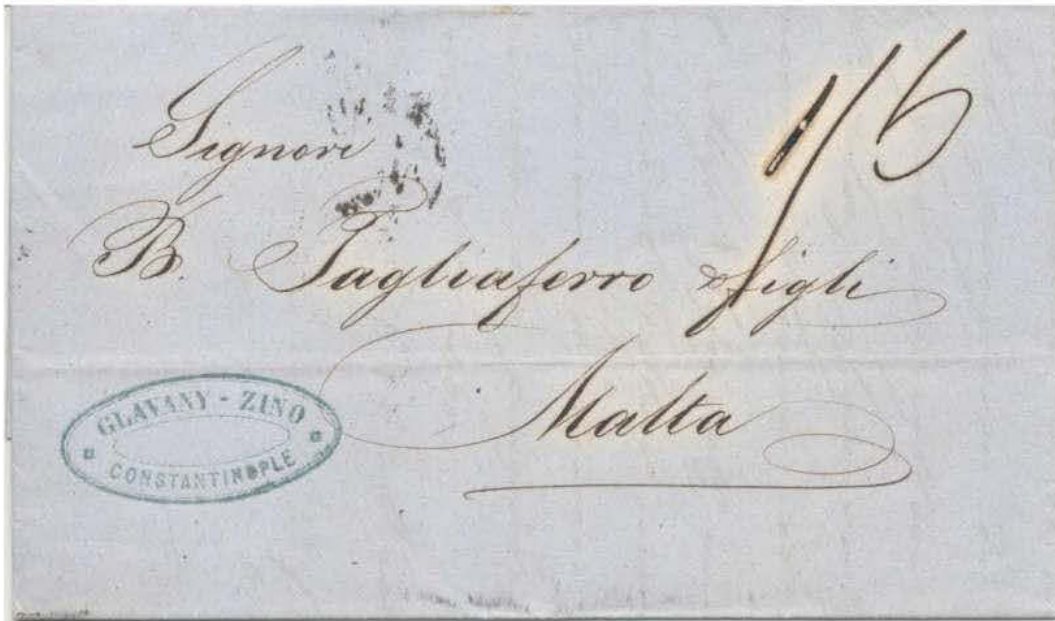 1/6
Signori
B. Tagliaferro & figli
Malta
GLAVANY - ZINO
CONSTANTINOPLE